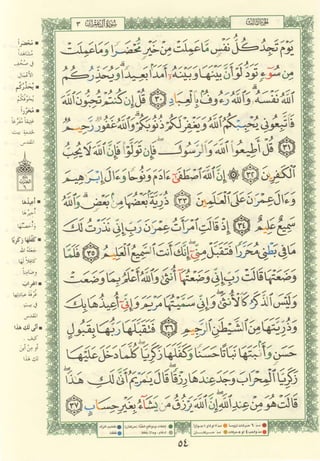 سُورَةُ آلِ عِمْرَانَ ٣
يَوْمَ تَجِدُ كُلُّ نَفْسٍ مَّا عَمِلَتْ مِنْ خَيْرٍ مُّحْضَرًا وَمَا عَمِلَتْ
مِن سُوٓءٍ تَوَدُّ لَوْ أَنَّ بَيْنَهَا وَبَيْنَهُۥٓ أَمَدًۢا بَعِيدًا ۗ وَيُحَذِّرُكُمُ
ٱللَّهُ نَفْسَهُۥ ۗ وَٱللَّهُ رَءُوفٌۢ بِٱلْعِبَادِ ٣٠ قُلْ إِن كُنتُمْ تُحِبُّونَ ٱللَّهَ
فَٱتَّبِعُونِى يُحْبِبْكُمُ ٱللَّهُ وَيَغْفِرْ لَكُمْ ذُنُوبَكُمْ ۗ وَٱللَّهُ غَفُورٌ رَّحِيمٌ
٣١ قُلْ أَطِيعُوا۟ ٱللَّهَ وَٱلرَّسُولَ ۖ فَإِن تَوَلَّوْا۟ فَإِنَّ ٱللَّهَ لَا يُحِبُّ
ٱلْكَٰفِرِينَ ٣٢ ۞ إِنَّ ٱللَّهَ ٱصْطَفَىٰٓ ءَادَمَ وَنُوحًا وَءَالَ إِبْرَٰهِيمَ
وَءَالَ عِمْرَٰنَ عَلَى ٱلْعَٰلَمِينَ ٣٣ ذُرِّيَّةًۢ بَعْضُهَا مِنۢ بَعْضٍ ۗ وَٱللَّهُ
سَمِيعٌ عَلِيمٌ ٣٤ إِذْ قَالَتِ ٱمْرَأَتُ عِمْرَٰنَ رَبِّ إِنِّى نَذَرْتُ لَكَ
مَا فِى بَطْنِى مُحَرَّرًا فَتَقَبَّلْ مِنِّىٓ ۖ إِنَّكَ أَنتَ ٱلسَّمِيعُ ٱلْعَلِيمُ ٣٥ فَلَمَّا
وَضَعَتْهَا قَالَتْ رَبِّ إِنِّى وَضَعْتُهَآ أُنثَىٰ وَٱللَّهُ أَعْلَمُ بِمَا وَضَعَتْ
وَلَيْسَ ٱلذَّكَرُ كَٱلْأُنثَىٰ ۖ وَإِنِّى سَمَّيْتُهَا مَرْيَمَ وَإِنِّىٓ أُعِيذُهَا بِكَ
وَذُرِّيَّتَهَا مِنَ ٱلشَّيْطَٰنِ ٱلرَّجِيمِ ٣٦ فَتَقَبَّلَهَا رَبُّهَا بِقَبُولٍ
حَسَنٍ وَأَنۢبَتَهَا نَبَاتًا حَسَنًا وَكَفَّلَهَا زَكَرِيَّا ۖ كُلَّمَا دَخَلَ عَلَيْهَا
زَكَرِيَّا ٱلْمِحْرَابَ وَجَدَ عِندَهَا رِزْقًا ۖ قَالَ يَٰمَرْيَمُ أَنَّىٰ لَكِ هَٰذَا ۖ
قَالَتْ هُوَ مِنْ عِندِ ٱللَّهِ ۖ إِنَّ ٱللَّهَ يَرْزُقُ مَن يَشَآءُ بِغَيْرِ حِسَابٍ ٣٧
٥٤